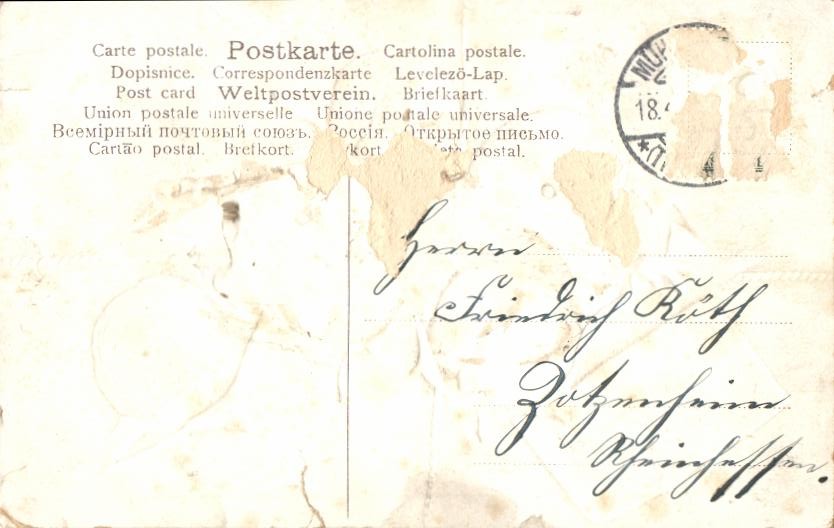 Carte postale. Postkarte. Cartolina postale.
Dopisnice. Correspondenzkarte Levelező-Lap.
Post card Weltpostverein. Briefkaart.
Union postale universelle Unione postale universale.
Всемірный почтовый союзъ. Россія. Открытое письмо.
Cartão postal. Brefkort. postal.
18.
4 1
Herrn
Friedrich Köth
Zotzenheim
Rheinhessen.